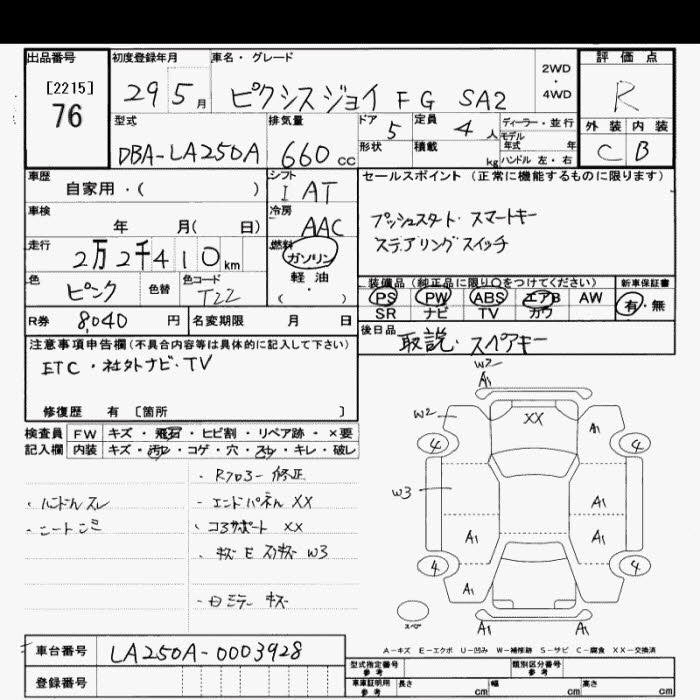 出品番号
[2215]
76
初度登録年月
29 5 月
車名・グレード
ピクシスジョイ FG SA2
2WD
・
4WD
評価点
R
外装 内装
C B
型式
DBA-LA250A
排気量
660 cc
ドア 5
定員 4 人
形状
積載 kg
ディーラー・並行
モデル年式 年
ハンドル 左・右
車歴
自家用・( )
シフト
I AT
車検
年 月( 日)
冷房
AAC
走行
2万2千410 km
燃料
ガソリン
軽油
・
( )
色
ピンク
色替
色コード
T22
R券 8,040 円
名変期限 月 日
セールスポイント(正常に機能するものに限ります)
プッシュスタート・スマートキー
ステアリングスイッチ
装備品(純正品に限り○をつけてください)
PS PW ABS エアB AW
SR ナビ TV カワ
新車保証書
有・無
後日品
取説・スペアキー
注意事項申告欄(不具合内容等は具体的に記入して下さい)
ETC・社外ナビ・TV
修復歴 有 [箇所 ]
検査員 FW キズ・飛石・ヒビ割・リペア跡・×要
記入欄 内装 キズ・汚レ・コゲ・穴・スレ・キレ・破レ
・ハンドルスレ
・シートシミ
・Rフロアー修正
・エンドパネル XX
・コアサポート XX
・キズ E スリキズ W3
W2
A1
XX
W2
A1
4
4
W3
A1
A1
A1
4
4
A1
A1
A1
スペア
A-キズ E-エクボ U-凹み W-補修跡 S-サビ C-腐食 XX-交換済
車台番号 LA250A-0003928
登録番号
型式指定番号
参考
類別区分番号
参考
車庫証明用
参考
長さ cm
幅 cm
高さ cm